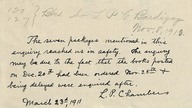 The seven packages mentioned in this
enquiry reached us in safety. The enquiry
may be due to the fact that the books posted
on Dec. 20th had been ordered Nov. 28th &
being delayed were enquired after.
L. P. Chambers
March 23rd 1911